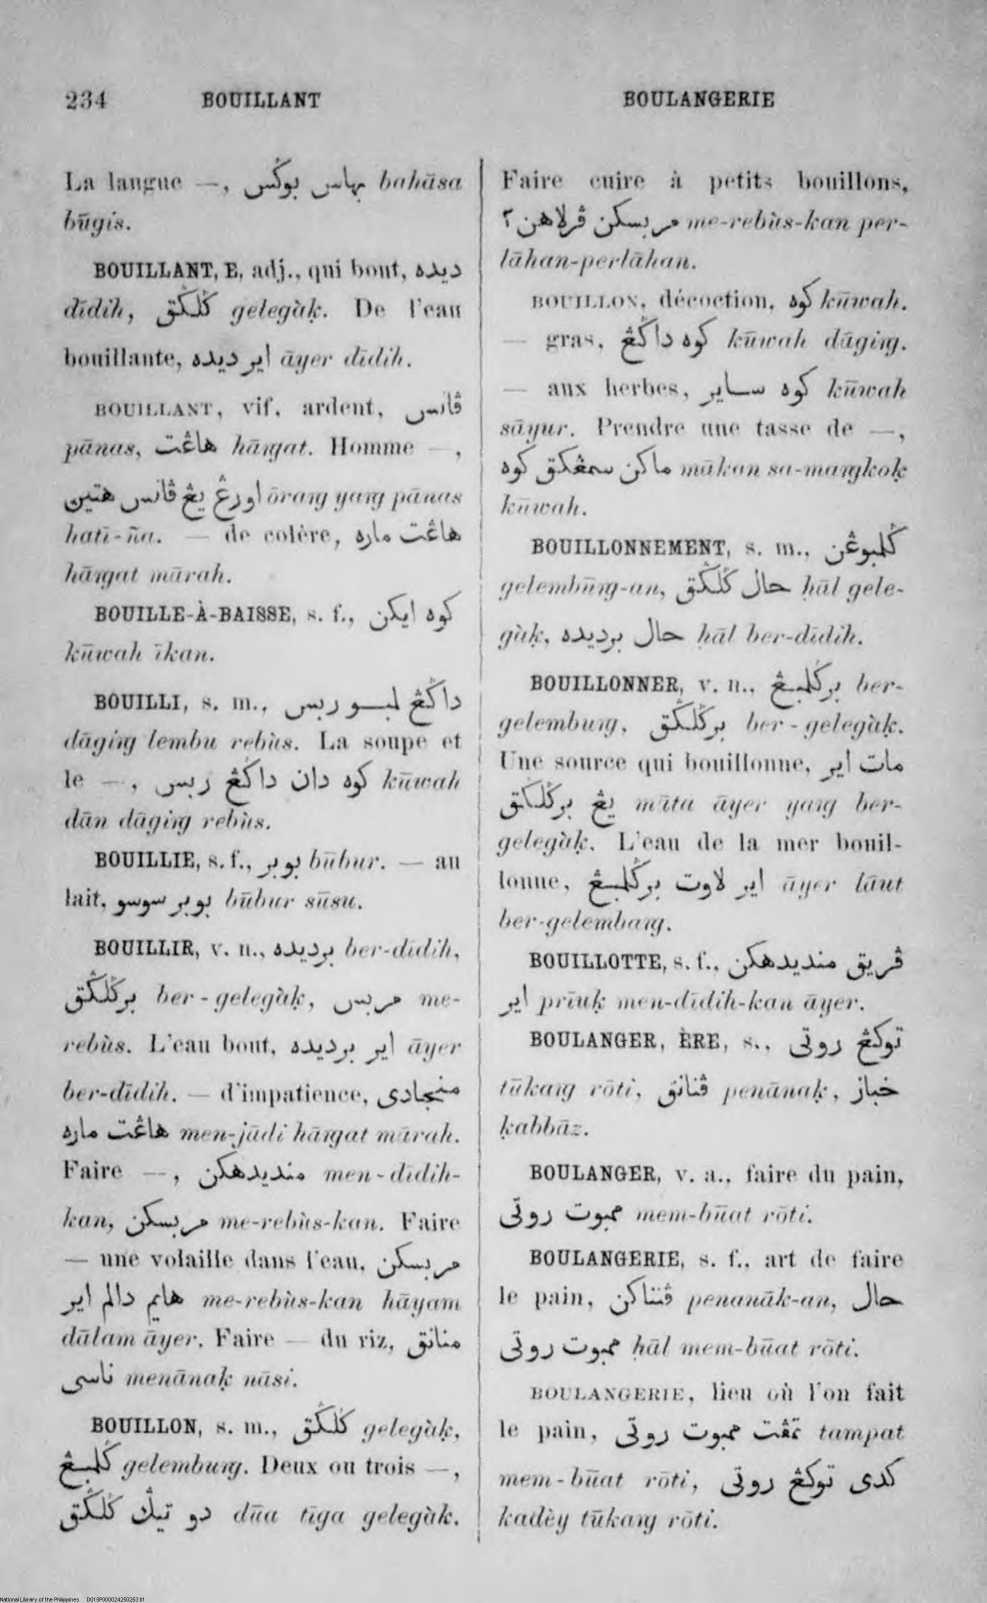 234 BOUILLANT BOULANGERIE
La langue —, بهاس بوݢس bahāsa
būgis.
BOUILLANT, E, adj., qui bout, ديده
dīdih, ݢلݢق gelegàḳ. De l'eau
bouillante, اير ديده āyer dīdih.
BOUILLANT, vif, ardent, ڤانس
pānas, هاڠت hāngat. Homme —,
اورڠ يڠ ڤانس هتين ōrang yang pānas
hati-ña. — de colère, هاڠت ماره
hāngat mārah.
BOUILLE-À-BAISSE, s. f., كوه ايكن
kūwah īkan.
BOUILLI, s. m., داݢڠ لمبو ربس
dāging lembu rebùs. La soupe et
le —, كوه دان داݢڠ ربس kūwah
dān dāging rebùs.
BOUILLIE, s. f., بوبر būbur. — au
lait, بوبر سوسو būbur sūsu.
BOUILLIR, v. n., برديده ber-dīdih,
برݢلݢق ber-gelegàḳ, مربس me-
rebùs. L'eau bout, اير برديده āyer
ber-dīdih. — d'impatience, منجادى
هاڠت ماره men-jādi hāngat mārah.
Faire —, منديدهكن men-dīdih-
kan, مربسكن me-rebùs-kan. Faire
— une volaille dans l'eau, مربسكن
هايم دالم اير me-rebùs-kan hāyam
dālam āyer. Faire — du riz, منانق
ناسى menānaḳ nāsi.
BOUILLON, s. m., ݢلݢق gelegàḳ,
ݢلمبڠ gelemburg. Deux ou trois —,
دو تيݢ ݢلݢق dūa tīga gelegàk.
Faire cuire à petits bouillons,
مربسكن ڤرلاهن ٢ me-rebùs-kan per-
lāhan-perlāhan.
BOUILLON, décoction, كوه kūwah.
— gras, كوه داݢڠ kūwah dāging.
— aux herbes, كوه ساير kūwah
sāyur. Prendre une tasse de —,
ماكن سمڠكق كوه mākan sa-mangkoḳ
kūwah.
BOUILLONNEMENT, s. m., ݢلمبوڠن
gelembūng-an, حال ݢلݢق ḥāl gele-
gàk, حال برديده ḥāl ber-dīdih.
BOUILLONNER, v. n., برݢلمبڠ ber-
gelemburg, برݢلݢق ber-gelegàḳ.
Une source qui bouillonne, مات اير
يڠ برݢلݢق māta āyer yang ber-
gelegàḳ. L'eau de la mer bouil-
lonne, اير لاوت برݢلمبڠ āyer lāut
ber-gelembang.
BOUILLOTTE, s. f., ڤريق منديدهكن
اير prīuḳ men-dīdih-kan āyer.
BOULANGER, ÈRE, s., توكڠ روتى
tūkang rōti, ڤنانق penānaḳ, خباز
ḳabbāz.
BOULANGER, v. a., faire du pain,
ممبوت روتى mem-būat rōti.
BOULANGERIE, s. f., art de faire
le pain, ڤنناكن penanāk-an, حال
ممبوت روتى ḥāl mem-būat rōti.
BOULANGERIE, lieu où l'on fait
le pain, تمڤت ممبوت روتى tampat
mem-būat rōti, كدى توكڠ روتى
kadèy tūkang rōti.
National Library of the Philippines